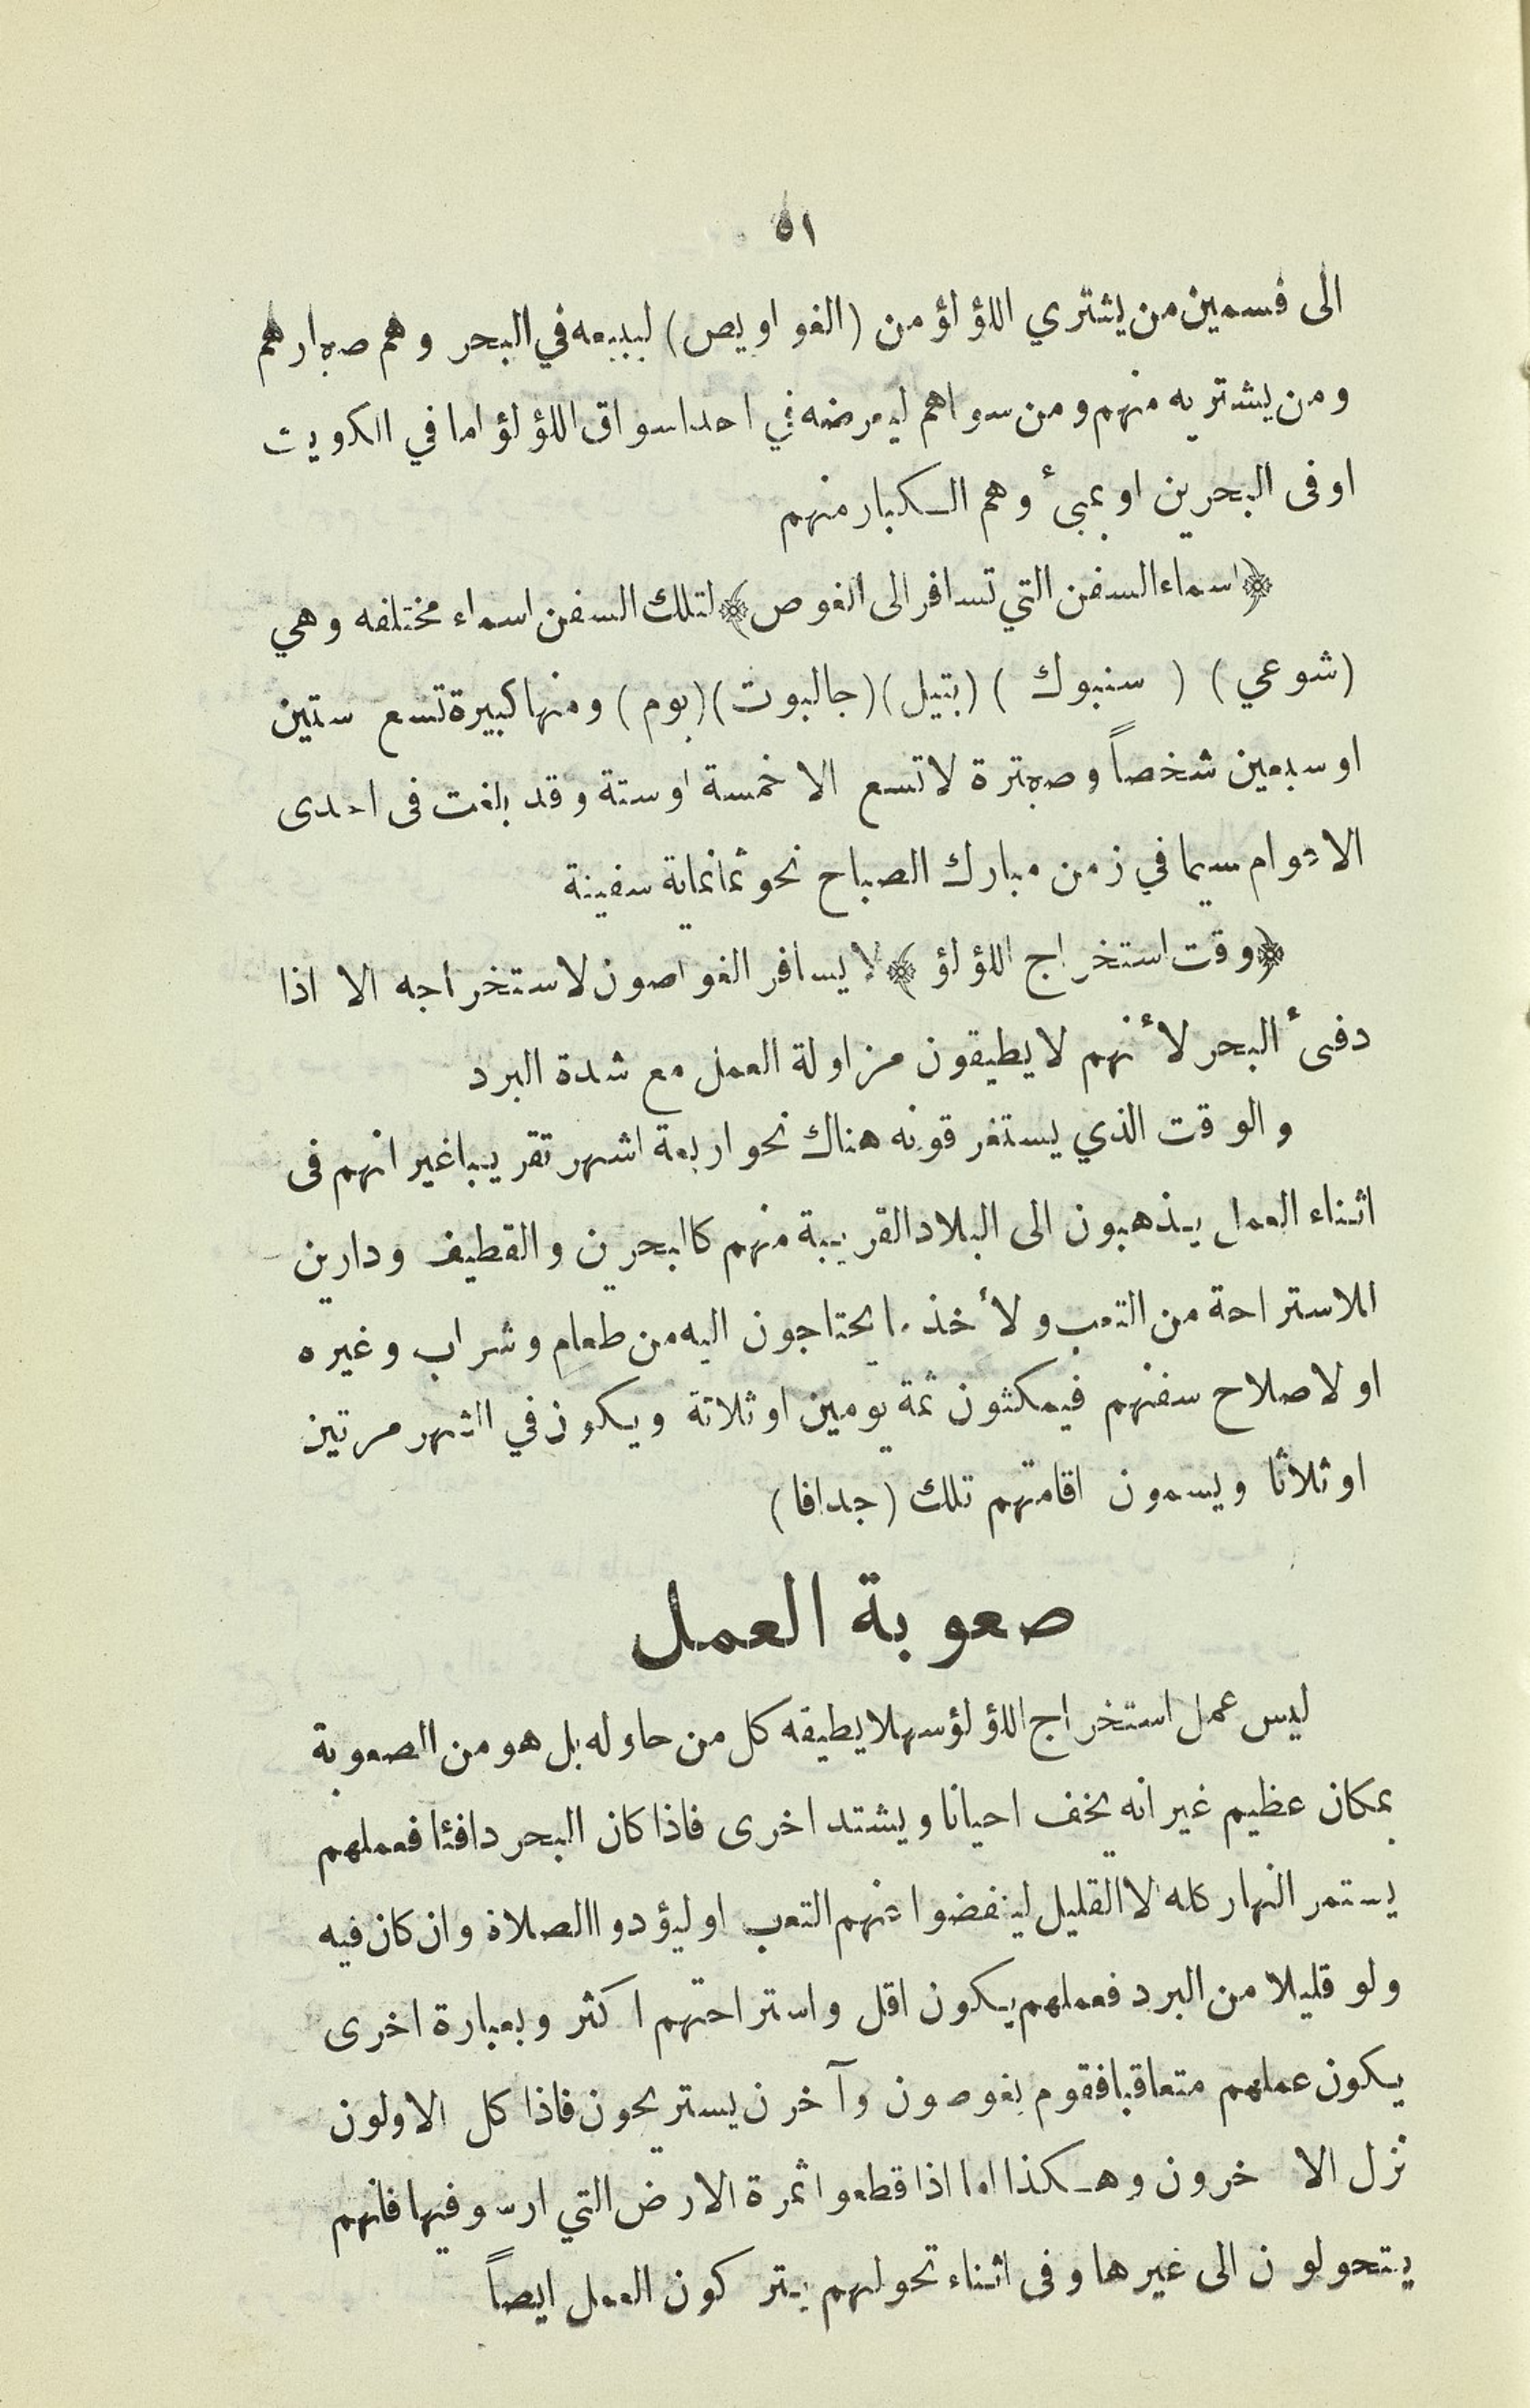 ٥١
الى قسمين من يشتري اللؤلؤ من (الغواويص) ليبيعه في البحر وهم صغارهم
ومن يشتريه منهم ومن سواهم ليعرضه في احد اسواق اللؤلؤ اما في الكويت
اوفى البحرين او بمبىء وهم الكبار منهم
﴿اسماء السفن التي تسافر الى الغوص﴾ لتلك السفن اسماء مختلفه وهي
(شوعي) ( سنبوك ) (بتيل) (جالبوت) (بوم) ومنها كبيرة تسع ستين
او سبعين شخصاً وصغيرة لا تسع الا خمسة او ستة وقد بلغت فى احدى
الاعوام سيما في زمن مبارك الصباح نحو ثمانماية سفينة
﴿وقت استخراج اللؤلؤ﴾ لا يسافر الغواصون لاستخراجه الا اذا
دفىء البحر لأنهم لا يطيقون مزاولة العمل مع شدة البرد
والوقت الذي يستغرقونه هناك نحو اربعة اشهر تقريبا غير انهم فى
اثناء العمل يذهبون الى البلاد القريبة منهم كالبحرين والقطيف ودارين
للاستراحة من التعب ولأخذ ما يحتاجون اليه من طعام وشراب وغيره
او لاصلاح سفنهم فيمكثون ثمة يومين او ثلاثة ويكون في الشهر مرتين
او ثلاثا ويسمون اقامتهم تلك (جدافا)
صعوبة العمل
ليس عمل استخراج اللؤلؤ سهلا يطيقه كل من حاوله بل هو من الصعوبة
بمكان عظيم غير انه يخف احيانا ويشتد اخرى فاذا كان البحر دافئا فعملهم
يستمر النهار كله الا القليل لينفضوا عنهم التعب او ليؤدوا الصلاة وان كان فيه
ولو قليلا من البرد فعملهم يكون اقل واستراحتهم اكثر وبعبارة اخرى
يكون عملهم متعاقبا فقوم يغوصون وآخرن يستريحون فاذا كل الاولون
نزل الاخرون وهكذا اما اذا قطعوا ثمرة الارض التي ارسو فيها فانهم
يتحولون الى غيرها وفى اثناء تحولهم يتركون العمل ايضاً